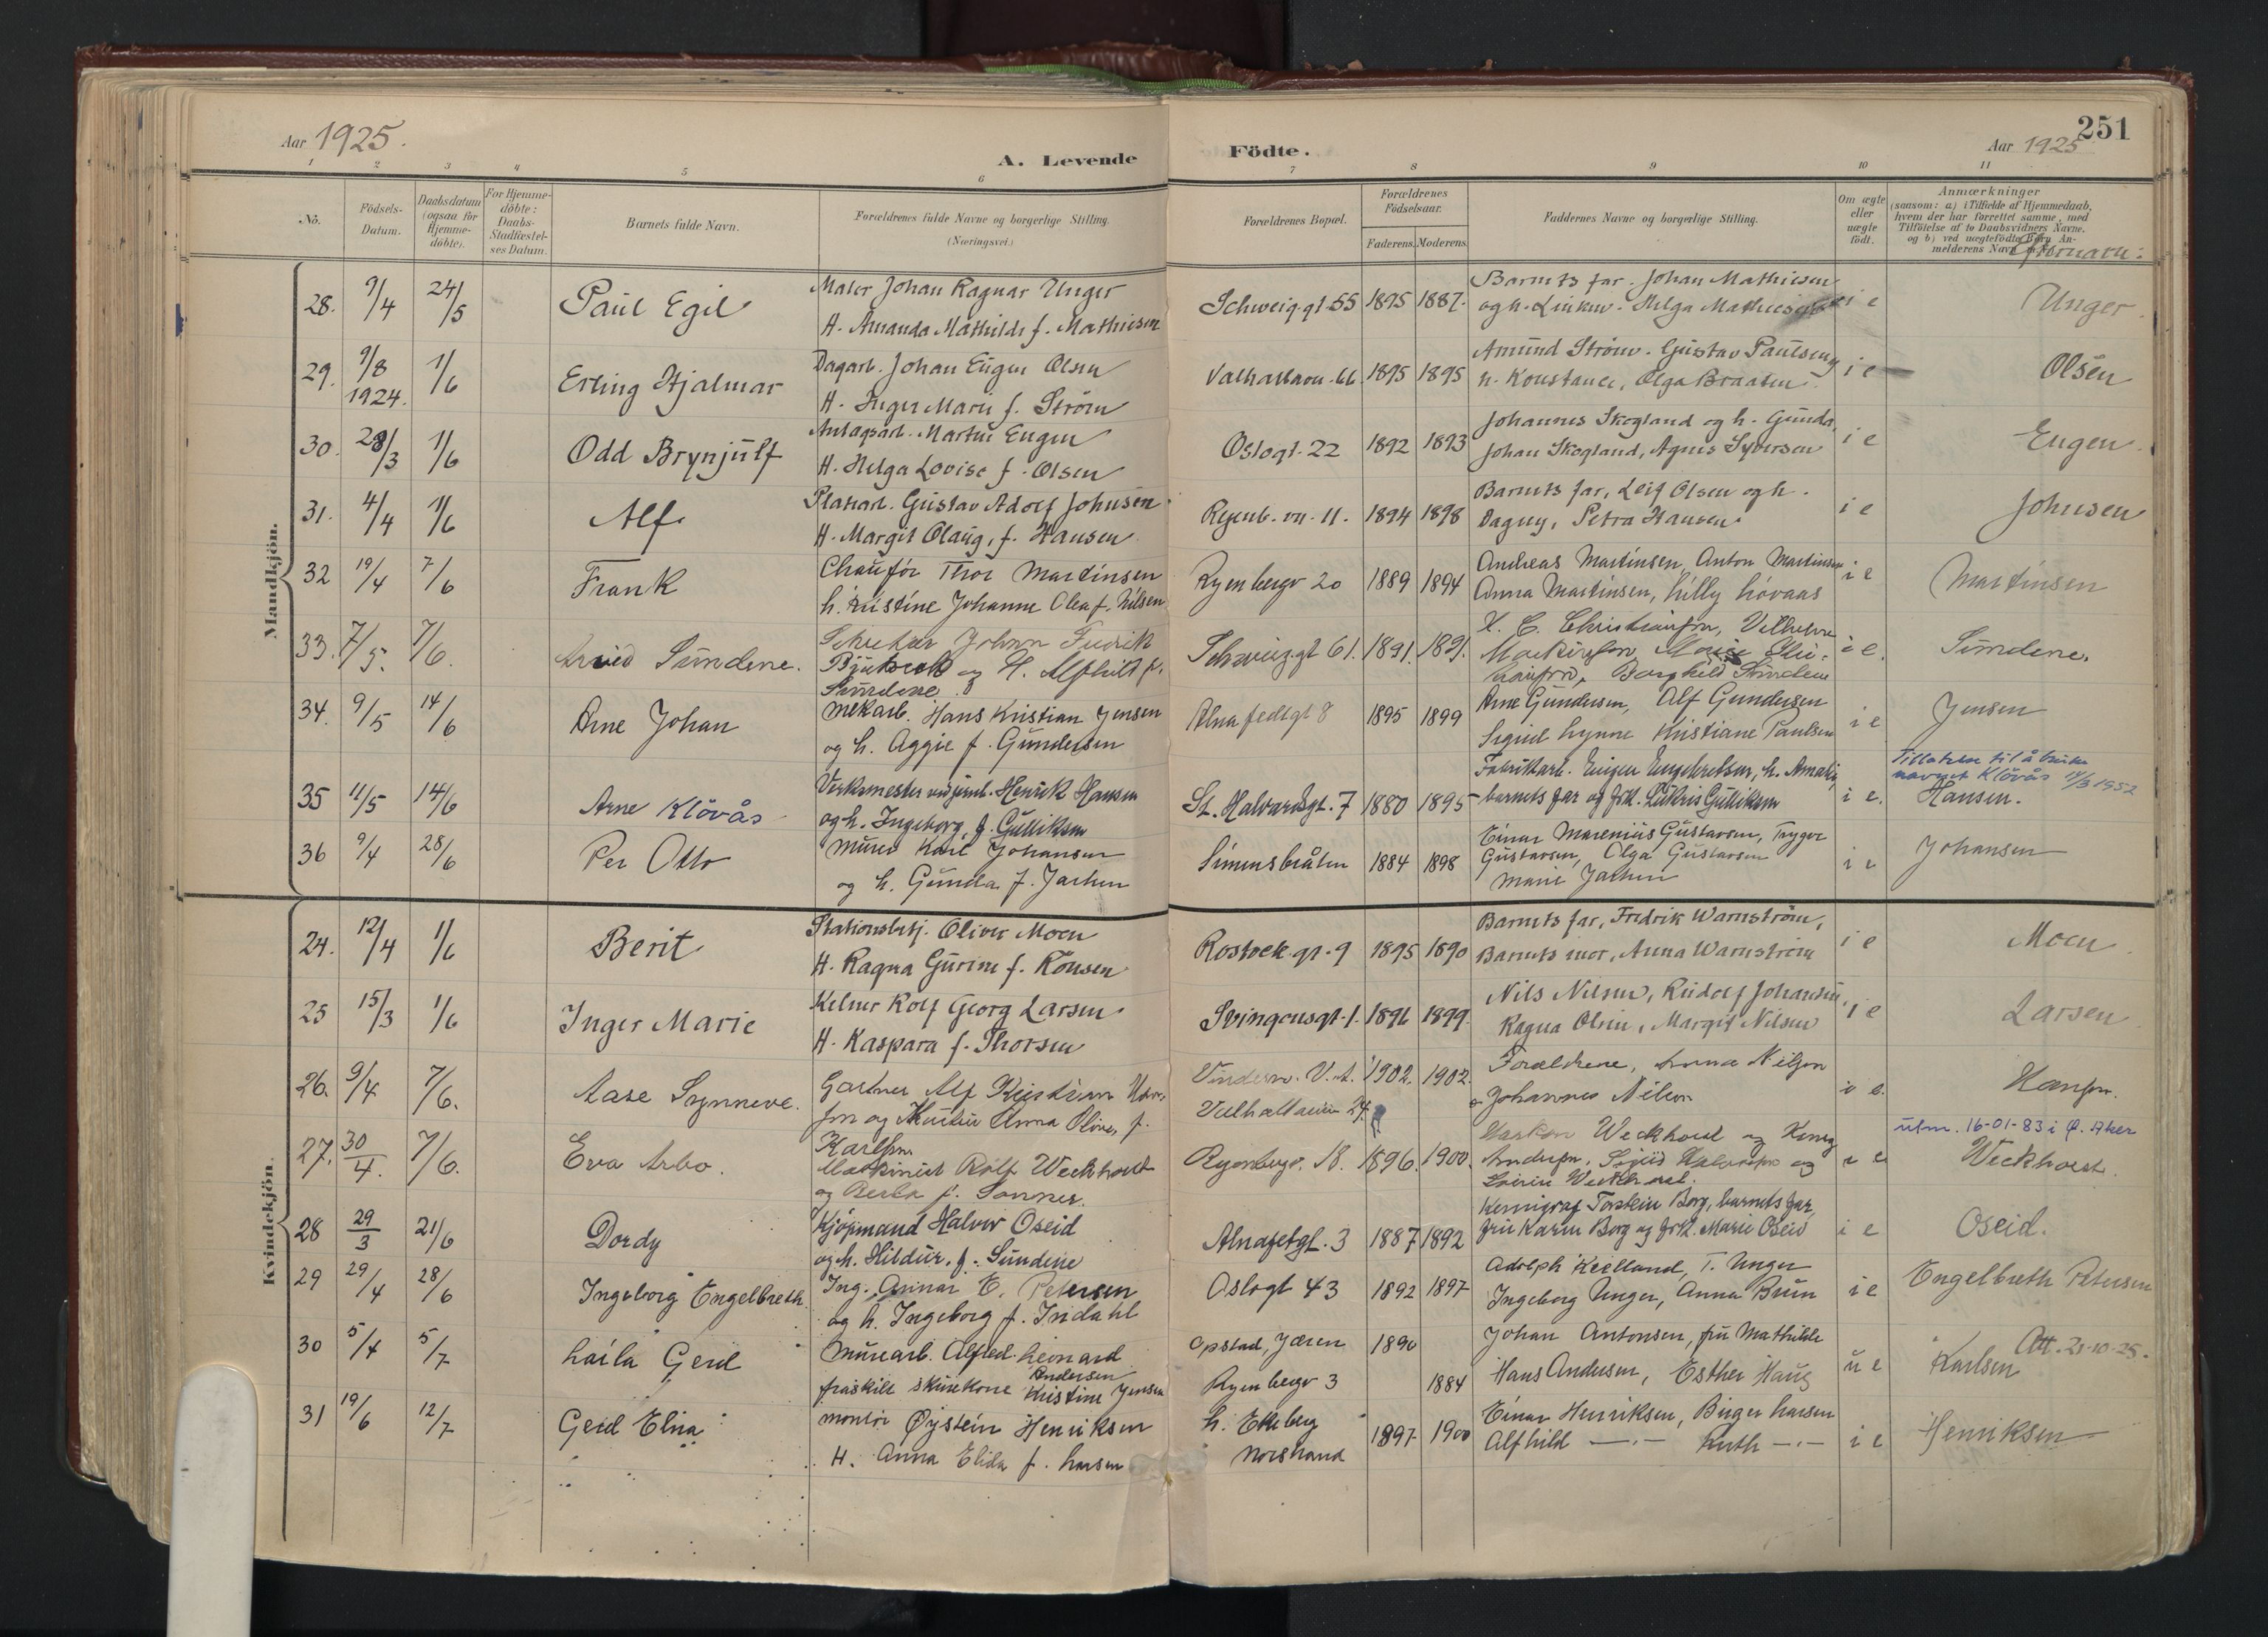 Aar 1925.
A. Levende Födte.
Aar 1925
251
1 2 3 4 5 6 7 8 9 10 11
No.
Födsels-Datum.
Daabsdatum (ogsaa for Hjemme-döbte).
For Hjemme-döbte: Daabs-Stadfæstel-ses Datum.
Barnets fulde Navn.
Forældrenes fulde Navne og borgerlige Stilling.
(Næringsvei.)
Forældrenes Bopæl.
Forældrenes Födselsaar.
Faderens. Moderens.
Faddernes Navne og borgerlige Stilling.
Om ægte eller uægte födt.
Anmærkninger
(saasom: a) i Tilfælde af Hjemmedaab,
hvem der har forrettet samme, med
Tilföielse af to Daabsvidners Navne.
og b) ved uægtefödte Börn An-
melderens Navn
Efternavn:
Mandkjön.
28. 9/4 24/5 Paul Egil
Maler Johan Ragnar Unger
H. Amanda Mathilde f. Mathiesen
Schweig.gt 55 1895 1887.
Barnets far. Johan Mathiesen
og h. Helga Mathiesen
i e Unger
29. 9/8 1924. 1/6 Erling Hjalmar
Dagarb. Johan Eugen Olsen
H. Inger Marie f. Ström
Valhallavn. 66. 1895 1895
Amund Ström. Gustav Paulsen og
h. Konstance, Olga Braaten
i e Olsen
30. 28/3 1/6 Odd Brynjulf
Anlagsarb. Martin Eugen
H. Helga Lovise f. Olsen
Oslogt. 22 1892 1893
Johannes Skogland og h. Gunda,
Johan Skogland, Agnes Syversen
i e Eugen
31. 4/4 1/6 Alf.
Platearb. Gustav Adolf Johnsen
H. Margit Olaug, f. Hansen
Ryenb. vn. 11. 1894 1898
Barnets far, Leif Olsen og h.
Dagny, Petra Hansen
i e Johnsen
32 19/4 7/6 Frank
Chauför Thor Martinsen
h. Kristine Johanne Olea f. Nilsen
Ryenbergv 20 1889 1894
Andreas Martinsen, Anton Martinsen
Anna Martinsen, Lilly Lövaas
i e Martinsen
33. 7/5. 7/6. Arvid Sundene.
Johan Fredrik
og H. Alfhild f.
Sundene
Schweig.gt 61. 1891. 1891.
H. C. Christiansen, Vilhelm
Borghild Sundene
i e. Sundene.
34. 9/5 14/6 Arne Johan
Mekarb. Hans Kristian Jensen
og h. Aggie f. Gundersen
Alnafedtgt 8 1895 1899
Arne Gundersen, Alf Gundersen
Sigrid Lynne Kristiane Paulsen
i e Jensen
35 11/5 14/6 Arne Klövås
Verksmester ved jernb. Henrik Hansen
og h. Ingeborg, f. Gulliksen
St. Halvardsgt. 7 1880 1895
Fabrikkarb. Eugen Engebretsen, h. Amalie,
barnets far og frk. Gulliksen
i e.
Tillatelse til å bruke
navnet Klövås 11/3 1952
Hansen.
36 9/4 28/6 Per Otto
Murer Karl Johansen
og h. Gunda f. Jachen
Simensbråten 1884 1898
Einar Marenius Gustavsen, Trygve
Gustavsen, Olga Gustavsen
Marie Jachen
i e Johansen
Kvindekjön.
24. 12/4 1/6 Berit
Stationsbetj. Oliver Moen
H. Ragna Gurine f. Tonsen
Rostock.gt. 9 1895 1890
Barnets far, Fredrik Warnström,
Barnets mor, Anna Warnström
i e Moen
25 15/3 1/6 Inger Marie
Kelner Rolf Georg Larsen
H. Kaspara f. Thorsen
Svingensgt. 1. 1896 1899.
Nils Nilsen, Rudolf Johansen,
Ragna Olsen, Margit Nilsen
i e Larsen
26. 9/4 7/6. Aase Synneve.
Gartner Alf Kristian Han-
sen og Anna Oline, f.
Karlsen
Vinderen. V.A. 1902. 1902.
Valhallavein 24.
Forældrene, Anna Nilsen
o. Johannes Nilsen
i e. Hansen.
27. 30/4. 7/6. Eva Arbo.
Maskinist Rolf Weckhorst
og Berta f. Sonner.
Ryenbergv. 18. 1896. 1900.
Haakon Weckhorst og
Andersen, Sigrid og
Weckhorst.
i e
utm. 16-01-83 i Ø. Aker
Weckhorst.
28 29/3 21/6 Dordy
Kjöpmand Halvor Oseid
og h. Hildur. f. Sundene
Alnafetgt. 3 1887 1892
Kemigraf Torstein Borg, barnets far,
fru Karen Borg og frk. Marie Oseid
i e Oseid.
29 29/4 28/6 Ingeborg Engelbreth
Ing. Gunnar E. Petersen
og h. Ingeborg f. Indahl
Oslogt 43 1892 1897
Adolph Kielland, T. Unger
Ingeborg Unger, Anna Bruun
i e Engelbreth Petersen
30 5/4 5/7 Laila Gerd
Murearb. Alfred Leonard
Andersen
fraskilt skurekone Kristine Jensen
Opstad, Jæren 1890
Ryenbergv 3 1884
Johan Antonsen, fru Mathilde
Hans Andersen, Esther Haug
u e Karlsen
Att. 21-10-25.
31 19/6 12/7 Gerd Elna
Montör Øystein Henriksen
H. Anna Elida f. Larsen
h. Ekeberg
Norstrand
1897 1900
Einar Henriksen, Birger Larsen
Alfhild —·— Ruth —·—
i e Henriksen